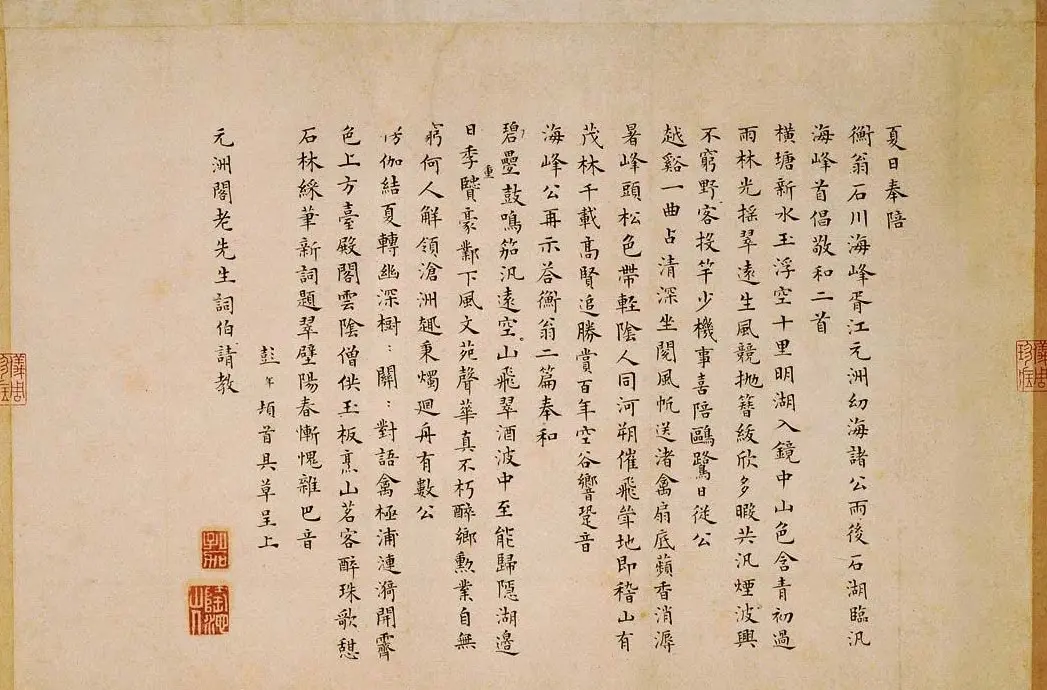 夏日奉陪
衡翁石川海峰胥江元洲幼海諸公雨後石湖臨汎
海峰首倡敬和二首
橫塘新水玉浮空十里明湖入鏡中山色含青初過
雨林光搖翠遠生風競拋簪綬欣多暇共汎煙波興
不窮野客投竿少機事喜陪鷗鷺日從公
越谿一曲占清深坐閱風帆送渚禽扇底蘋香消溽
暑峰頭松色帶輕陰人同河朔催飛斝地即稽山有
茂林千載高賢追勝賞百年空谷響跫音
海峰公再示答衡翁二篇奉和
碧疊鼓鳴笳汎遠空山飛翠酒波中至能歸隱湖邊
日季重豪鄴下風文苑聲華真不朽醉鄉勲業自無
窮何人解領滄洲趣秉燭迴舟有數公
伽結夏轉幽深樹：關：對語禽極浦漣漪開霽
色上方臺殿閣雲陰僧供玉板烹山茗客醉珠歌憇
石林綵筆新詞題翠壁陽春慚愧雜巴音
彭年頓首具草呈上
元洲閣老先生詞伯請教
孔加